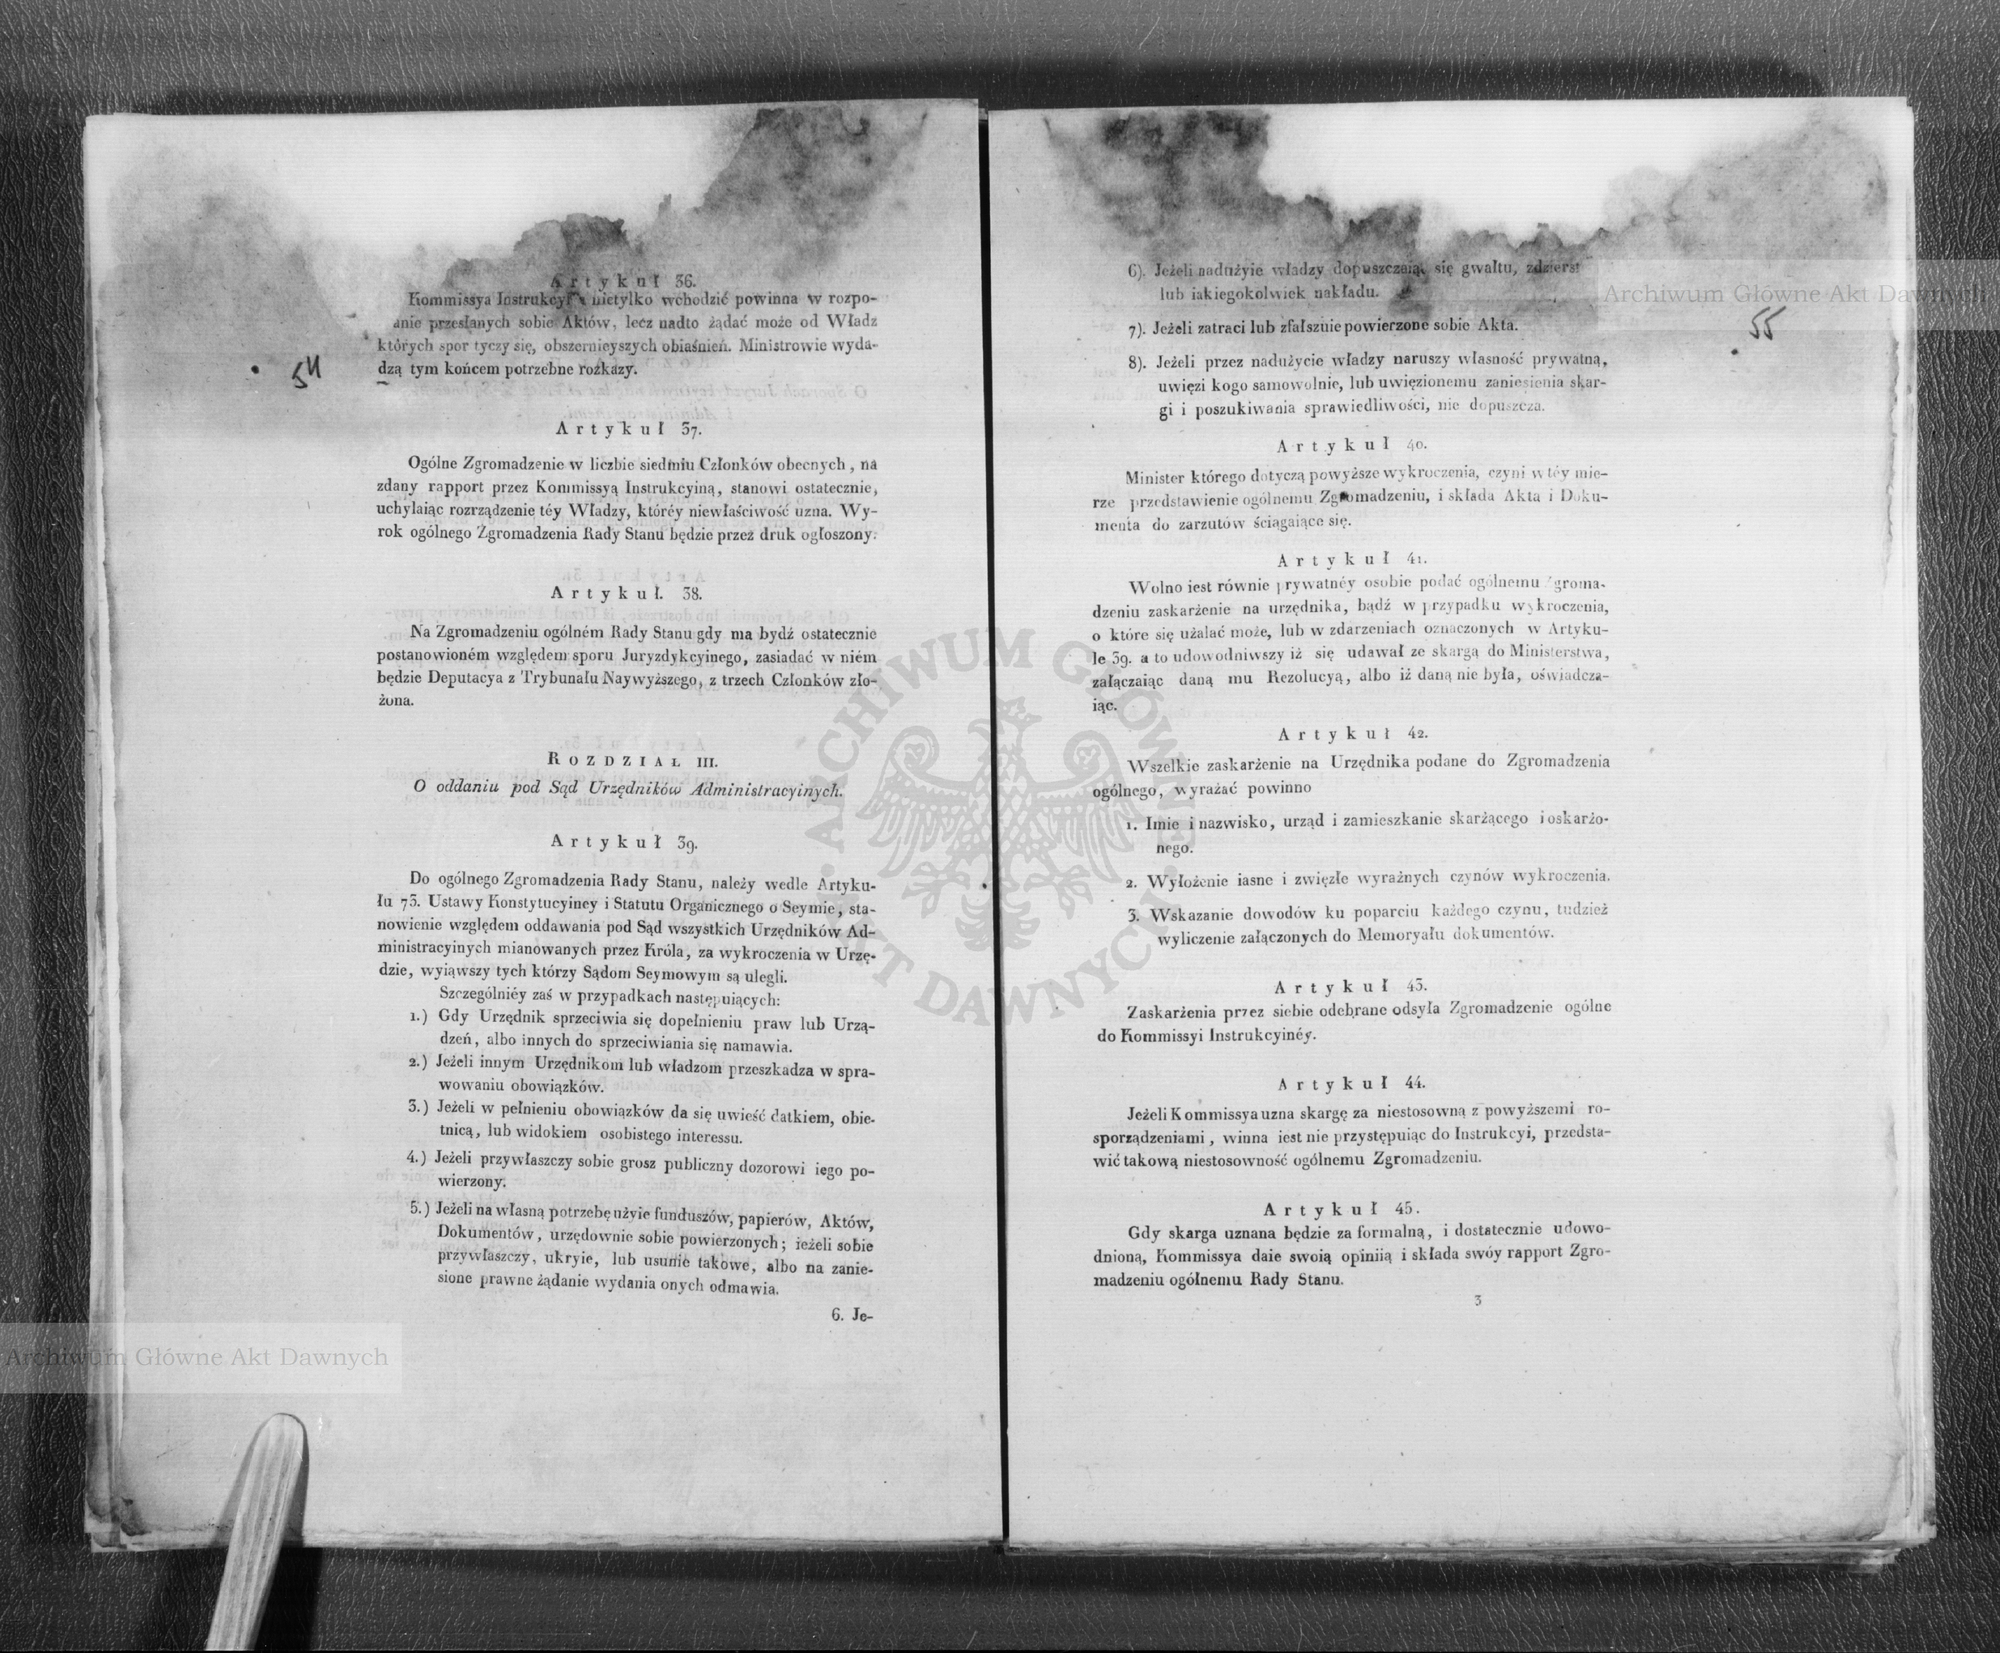 Artykuł 36.
Kommissya Instrukcy nietylko wchodzić powinna w rozpo-
anie przesłanych sobie Aktów, lecz nadto żądać może od Władz
których spor tyczy się, obszernieyszych obiaśnień. Ministrowie wyda-
dzą tym końcem potrzebne rozkazy.
54
Artykuł 37.
Ogólne Zgromadzenie w liczbie siedmiu Członków obecnych, na
zdany rapport przez Kommissyą Instrukcyiną, stanowi ostatecznie,
uchylaiąc rozrządzenie téy Władzy, któréy niewłaściwość uzna. Wy-
rok ogólnego Zgromadzenia Rady Stanu będzie przez druk ogłoszony.
Artykuł. 38.
Na Zgromadzeniu ogólném Rady Stanu gdy ma bydź ostatecznie
postanowioném względem sporu Juryzdykcyinego, zasiadać w niém
będzie Deputacya z Trybunału Naywyższego, z trzech Członków zło-
żona.
ROZDZIAŁ III.
O oddaniu pod Sąd Urzędników Administracyinych.
Artykuł 39.
Do ogólnego Zgromadzenia Rady Stanu, należy wedle Artyku-
łu 73. Ustawy Konstytucyiney i Statutu Organicznego o Seymie, sta-
nowienie względem oddawania pod Sąd wszystkich Urzędników Ad-
ministracyinych mianowanych przez Króla, za wykroczenia w Urzę-
dzie, wyiąwszy tych którzy Sądom Seymowym są ulegli.
Szczególniéy zaś w przypadkach następuiących:
1.) Gdy Urzędnik sprzeciwia się dopełnieniu praw lub Urzą-
dzeń, albo innych do sprzeciwiania się namawia.
2.) Jeżeli innym Urzędnikom lub władzom przeszkadza w spra-
wowaniu obowiązków.
3.) Jeżeli w pełnieniu obowiązków da się uwieść datkiem, obie-
tnicą, lub widokiem osobistego interessu.
4.) Jeżeli przywłaszczy sobie grosz publiczny dozorowi iego po-
wierzony.
5.) Jeżeli na własną potrzebę użyie funduszów, papierów, Aktów,
Dokumentów, urzędownie sobie powierzonych; ieżeli sobie
przywłaszczy, ukryie, lub usunie takowe, albo na zanie-
sione prawne żądanie wydania onych odmawia.
6. Je-
6). Jeżeli nadużyie władzy dopuszczaiąc się gwałtu, zdzierst
lub iakiegokolwiek nakładu.
7). Jeżeli zatraci lub zfałszuie powierzone sobie Akta.
55
8). Jeżeli przez nadużycie władzy naruszy własność prywatną,
uwięzi kogo samowolnie, lub uwięzionemu zaniesienia skar-
gi i poszukiwania sprawiedliwości, nie dopuszcza.
Artykuł 40.
Minister którego dotyczą powyższe wykroczenia, czyni w téy mie-
rze przedstawienie ogólnemu Zgromadzeniu, i składa Akta i Doku-
menta do zarzutów ściągaiące się.
Artykuł 41.
Wolno iest równie prywatnéy osobie podać ogólnemu Zgroma-
dzeniu zaskarżenie na urzędnika, bądź w przypadku wykroczenia,
o które się użalać może, lub w zdarzeniach oznaczonych w Artyku-
le 39. a to udowodniwszy iż się udawał ze skargą do Ministerstwa,
załączaiąc daną mu Rezolucyą, albo iż daną nie była, oświadcza-
iąc.
Artykuł 42.
Wszelkie zaskarżenie na Urzędnika podane do Zgromadzenia
ogólnego, wyrażać powinno
1. Imie i nazwisko, urząd i zamieszkanie skarżącego i oskarżo-
nego.
2. Wyłożenie iasne i zwięzłe wyraźnych czynów wykroczenia.
3. Wskazanie dowodów ku poparciu każdego czynu, tudzież
wyliczenie załączonych do Memoryału dokumentów.
Artykuł 43.
Zaskarżenia przez siebie odebrane odsyła Zgromadzenie ogólne
do Kommissyi Instrukcyinéy.
Artykuł 44.
Jeżeli Kommissya uzna skargę za niestosowną z powyższemi ro-
sporządzeniami, winna iest nie przystępuiąc do Instrukcyi, przedsta-
wić takową niestosowność ogólnemu Zgromadzeniu.
Artykuł 45.
Gdy skarga uznana będzie za formalną, i dostatecznie udowo-
dnioną, Kommissya daie swoią opiniią i składa swóy rapport Zgro-
madzeniu ogólnemu Rady Stanu.
3
Archiwum Główne Akt Dawnych
Archiwum Główne Akt Dawnych
ARCHIWUM GŁÓWNE AKT DAWNYCH